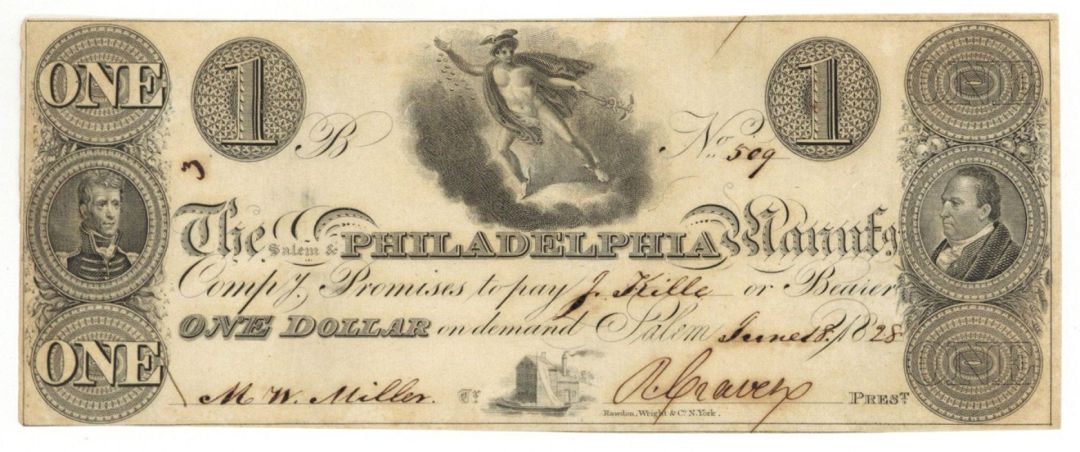 ONE 1 1 ONE
B No. 509
3
The Salem & PHILADELPHIA Manufg
Compy. Promises to pay J. Kille or Bearer
ONE DOLLAR on demand Salem June 18. 1828
ONE ONE
M. W. Miller. Tr. R. Craven PREST
Rawdon, Wright & Co. N. York.